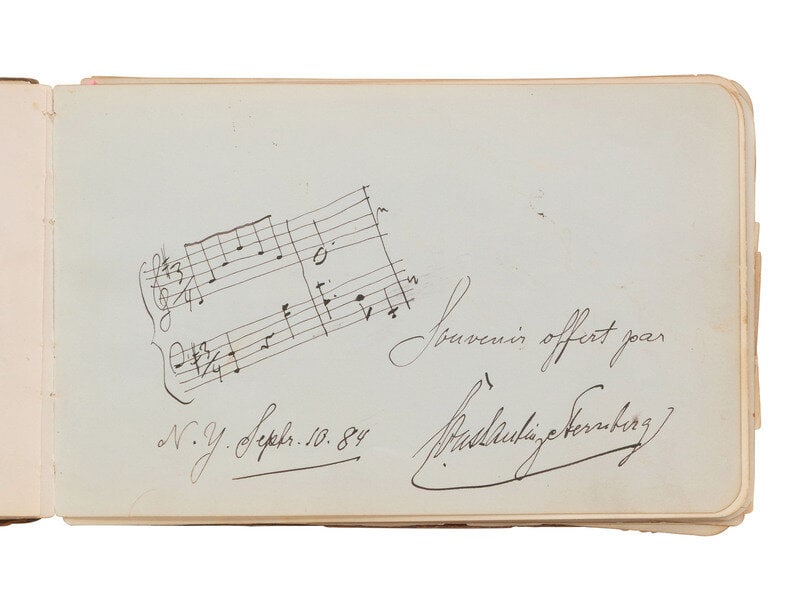 3/4
3/4
Souvenir offert par
N. Y. Septr. 10. 84
Constantin Sternberg